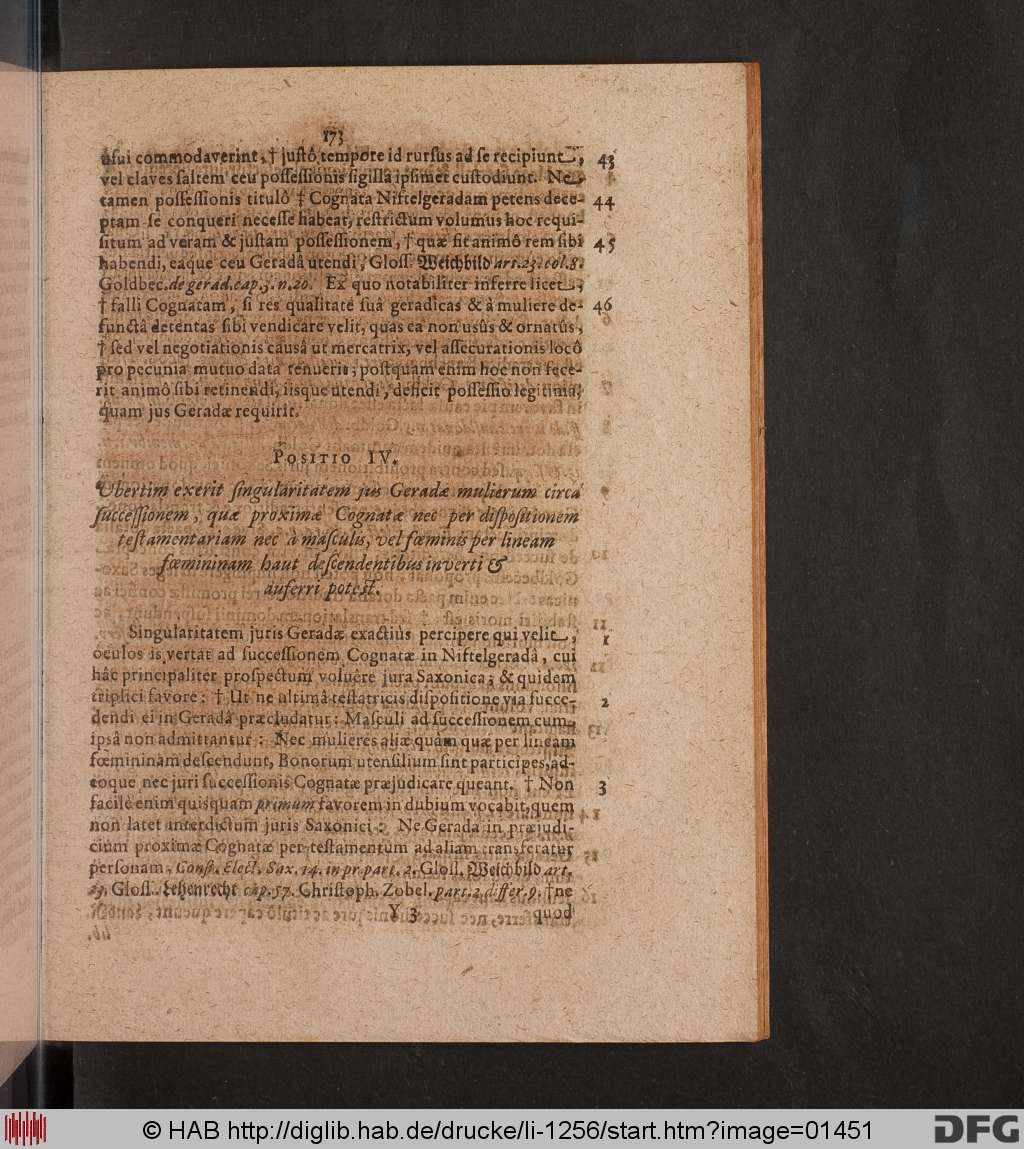 173
usui commodaverint, † justô tempore id rursus ad se recipiunt, 43
vel claves saltem ceu possessionis sigilla ipsimet custodiunt. Ne
tamen possessionis titulô † Cognata Niftelgeradam petens dece- 44
ptam se conqueri necesse habeat, restrictum volumus hoc requi-
situm ad veram & justam possessionem, † quæ fit animô rem sibi 45
habendi, eaque ceu Geradâ utendi, Gloss. Weichbild art. 23. col. 8.
Goldbec. de gerad. cap. 3. n. 20. Ex quo notabiliter inferre licet,
† falli Cognatam, si res qualitate suâ geradicas & à muliere de- 46
functâ detentas sibi vendicare velit, quas ea non usûs & ornatûs,
† sed vel negotiationis causâ ut mercatrix, vel assecurationis locô
pro pecunia mutuo data tenuerit; postquam enim hoc non fece-
rit animô sibi retinendi, iisque utendi, deficit possessio legitima,
quam jus Geradæ requirit.
POSITIO IV.
Ubertim exerit singularitatem jus Geradæ mulierum circa
successionem, quæ proximæ Cognatæ nec per dispositionem
testamentariam nec à masculis, vel fœminis per lineam
fœmininam haut descendentibus inverti &
auferri potest.
Singularitatem juris Geradæ exactius percipere qui velit, 1
oculos is vertat ad successionem Cognatæ in Niftelgeradâ, cui
hâc principaliter prospectum voluere jura Saxonica; & quidem
triplici favore: † Ut ne ultimâ testatricis dispositione via succe- 2
dendi ei in Geradâ præcludatur: Masculi ad successionem cum
ipsâ non admittantur: Nec mulieres aliæ quàm quæ per lineam
fœmininam descendunt, Bonorum utensilium sint participes, ad-
eoque nec juri successionis Cognatæ præjudicare queant. † Non 3
facilè enim quisquam primum favorem in dubium vocabit, quem
non latet interdictum juris Saxonici: Ne Gerada in præjudi-
cium proximæ Cognatæ per testamentum ad aliam transferatur
personam, Const. Elect. Sax. 14. in pr. part. 2. Gloss. Weichbild art.
23. Gloss. Lehenrecht cap. 57. Christoph. Zobel. part. 2. differ. 9. † ne
Y 3 quod
© HAB http://diglib.hab.de/drucke/li-1256/start.htm?image=01451
DFG